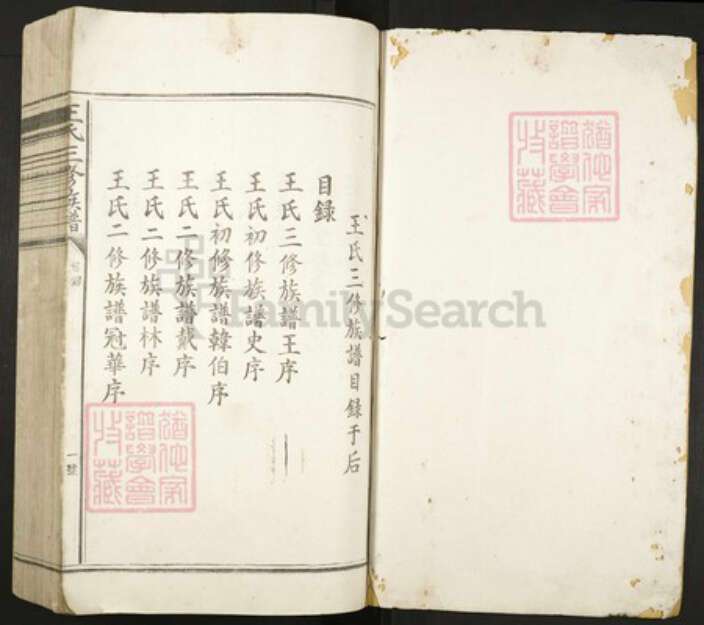 王氏三修族譜目錄于后
目錄
王氏三修族譜王序
王氏初修族譜史序
王氏初修族譜韓伯序
王氏二修族譜戴序
王氏二修族譜林序
王氏二修族譜冠華序
王氏三修族譜
目錄
一號
猶他家
譜學會
收藏
猶他家
譜學會
收藏
FamilySearch